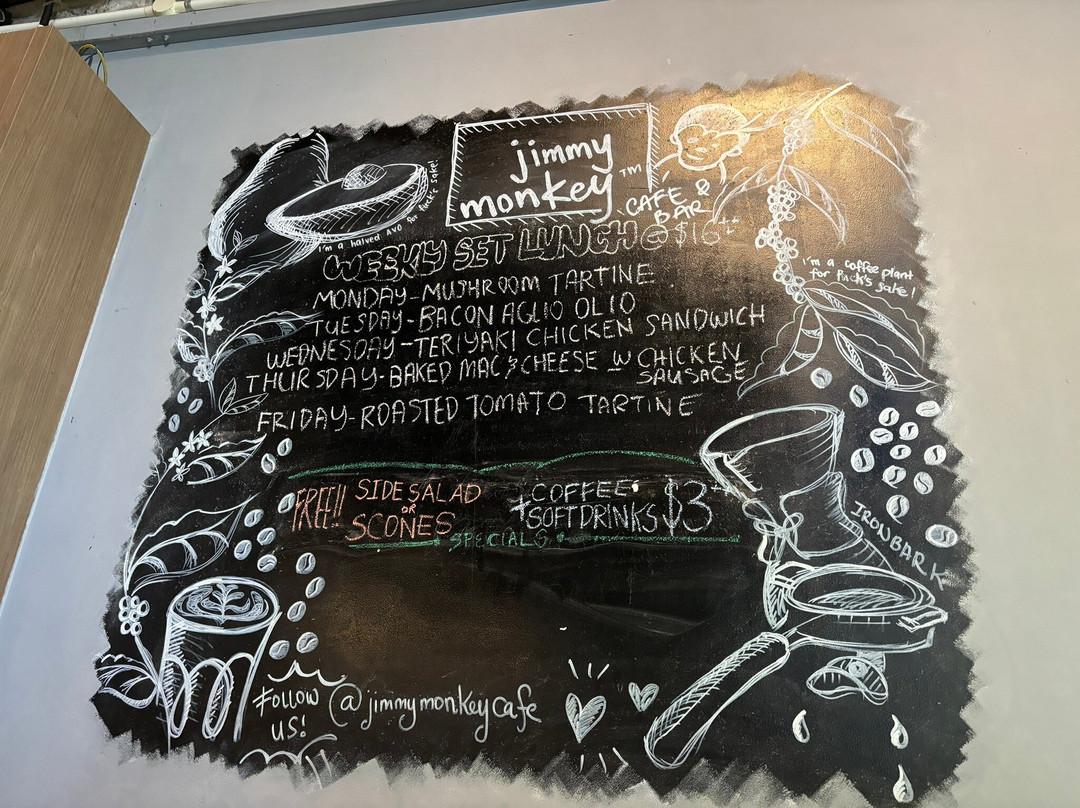 jimmy
monkey™
CAFE &
BAR
I'm a halved AVO for fuck's sake!
WEEKLY SET LUNCH @ $16++
MONDAY-MUSHROOM TARTINE
TUESDAY-BACON AGLIO OLIO
WEDNESDAY-TERIYAKI CHICKEN SANDWICH
THURSDAY-BAKED MAC & CHEESE W CHICKEN
SAUSAGE
FRIDAY-ROASTED TOMATO TARTINE
I'm a coffee plant
for fuck's sake!
FREE!! SIDE SALAD
OR
SCONES
+ COFFEE
SOFTDRINKS $3
SPECIALS
IRONBARK
FOLLOW
US!
@jimmymonkeycafe